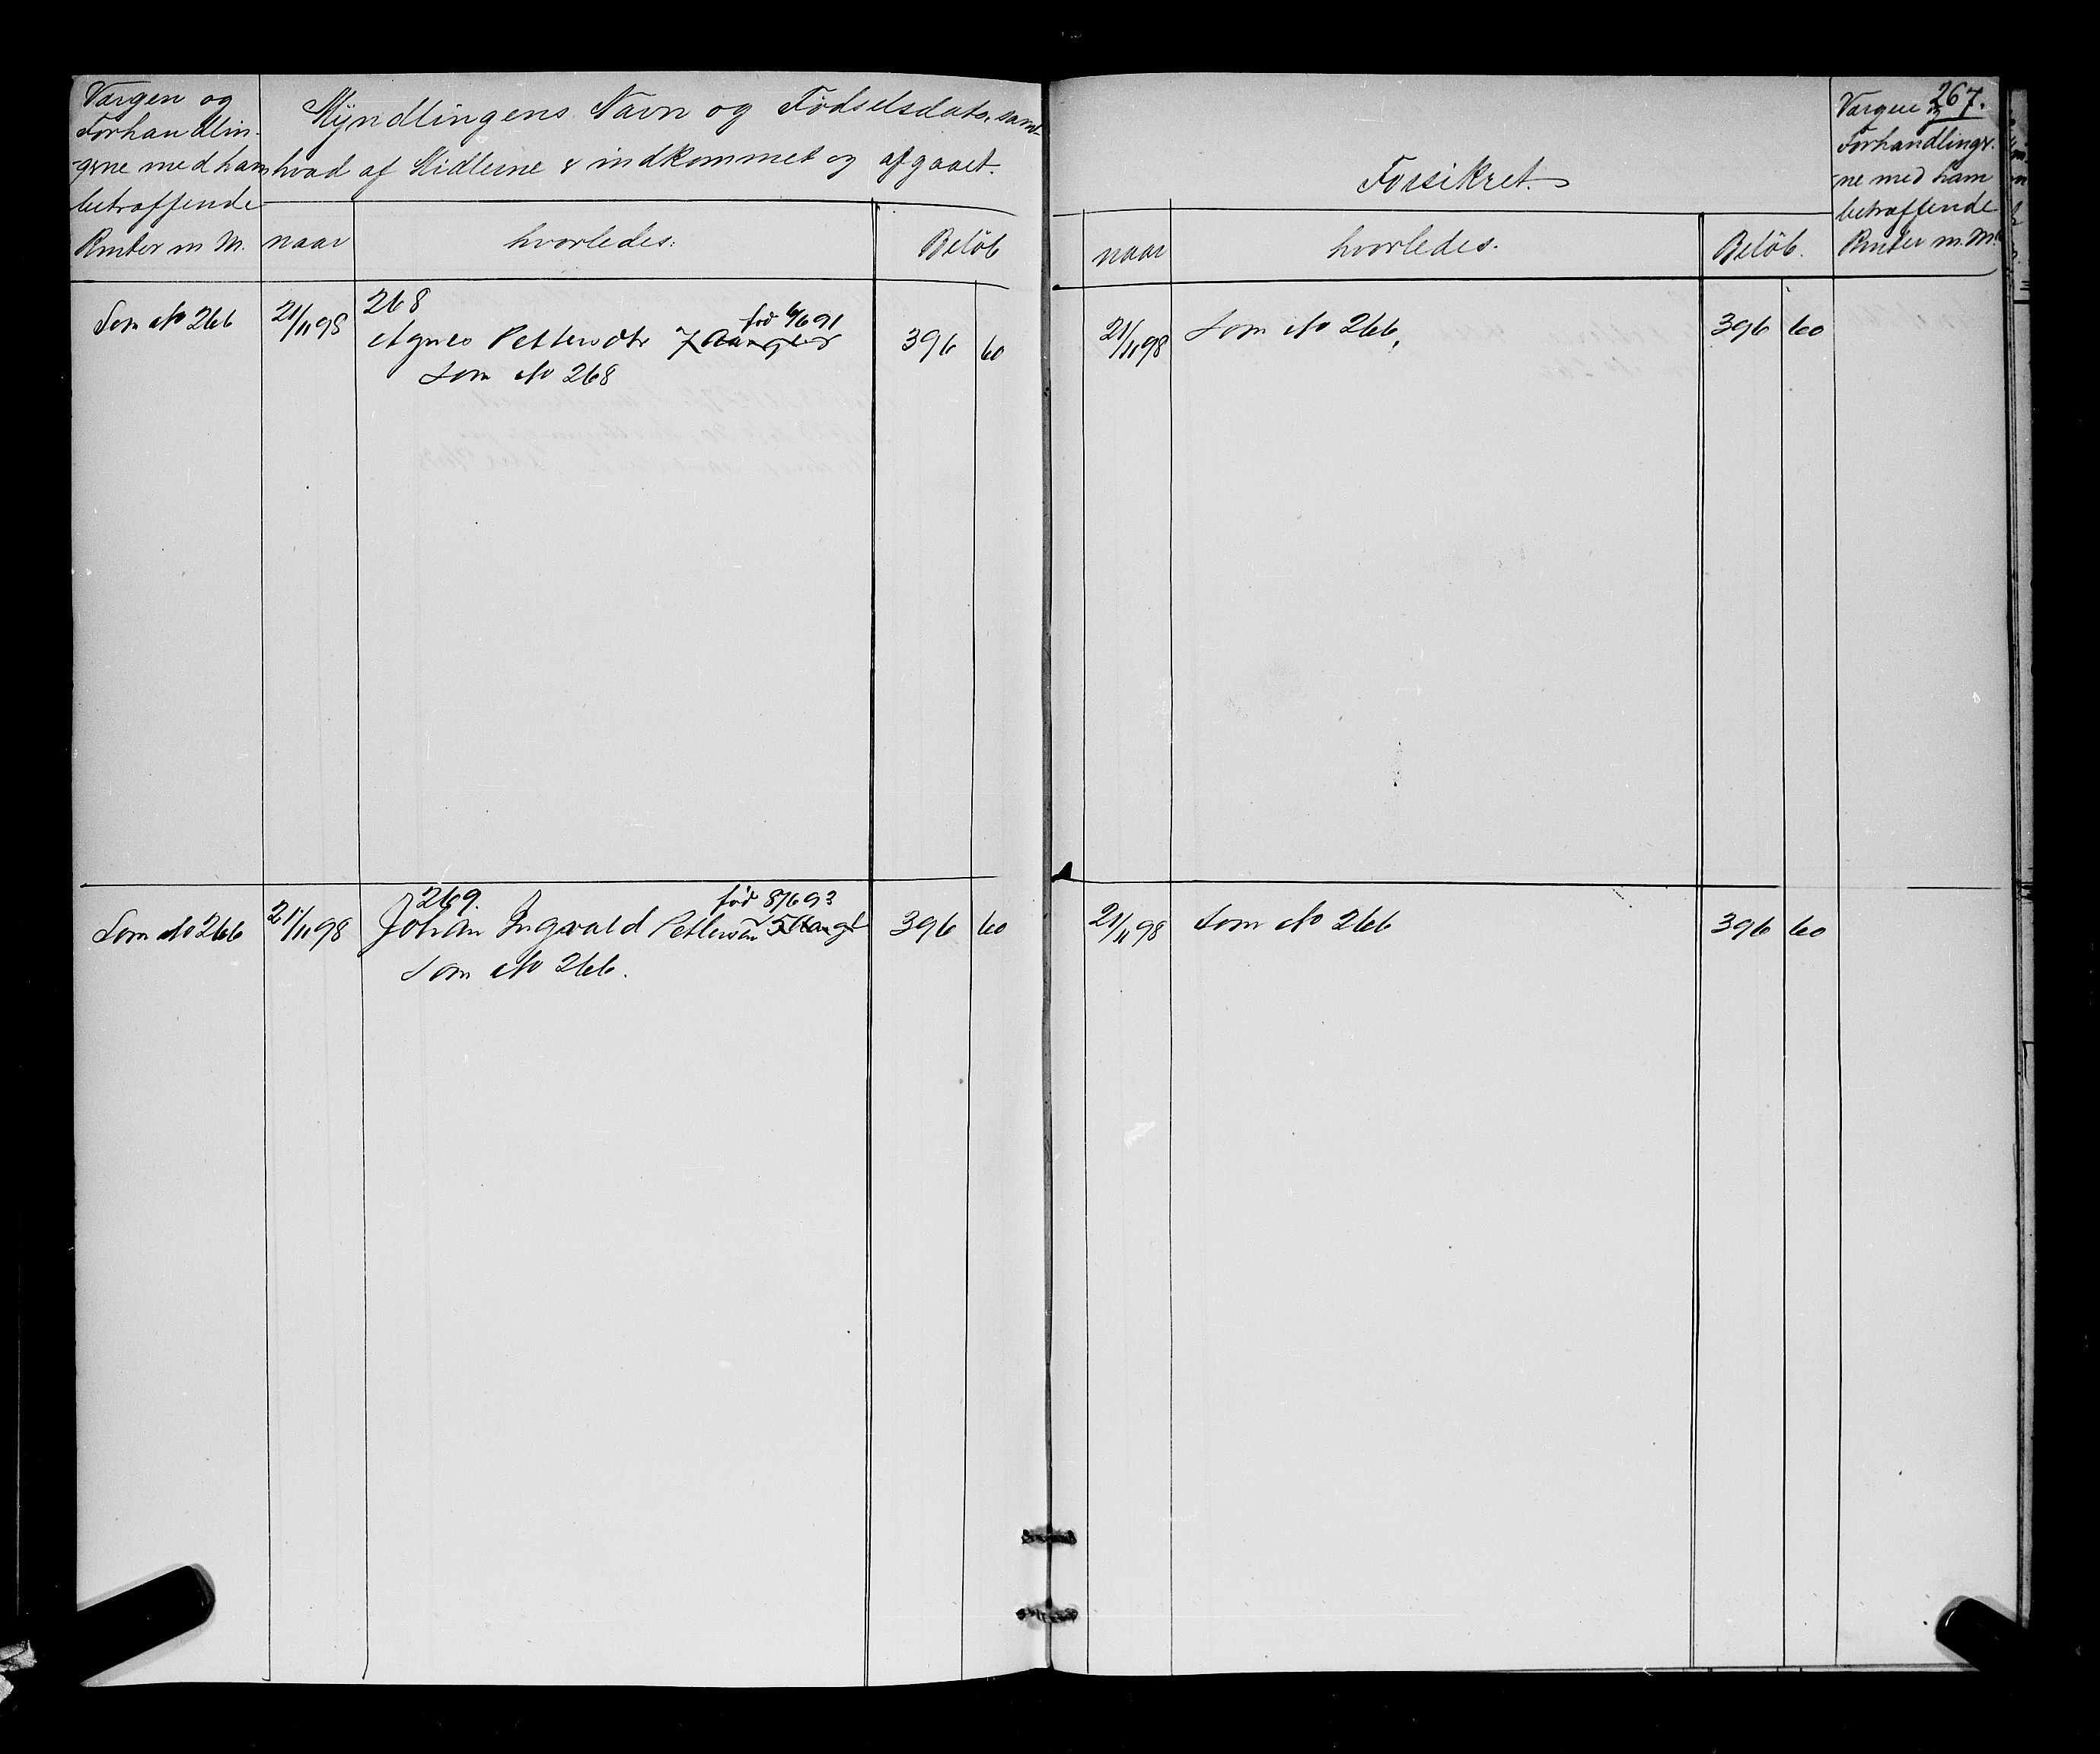 Værgen og
Forhandlin-
gerne med ham
betræffende
Renter m M.
Myndlingens Navn og Födselsdato, samt
hvad af Midlerne er indkommet og afgaaet.
naar hvorledes: Belöb
Som No 266 21/11 98 268
Agnes Pettersdtr 7 Aar gl född 6/6 91 396 60
Som No 268
Som No 266 21/11 98 269.
Johan Ingvald Pettersen 5 Aar gl född 8/6 93 396 60
Som No 266.
267.
Forsikret.
Værgen og
Forhandlinger-
ne med ham
betræffende
Renter m. M.
naar hvorledes. Belöb.
21/11 98 Som No 266. 396 60
21/11 98 Som No 266 396 60